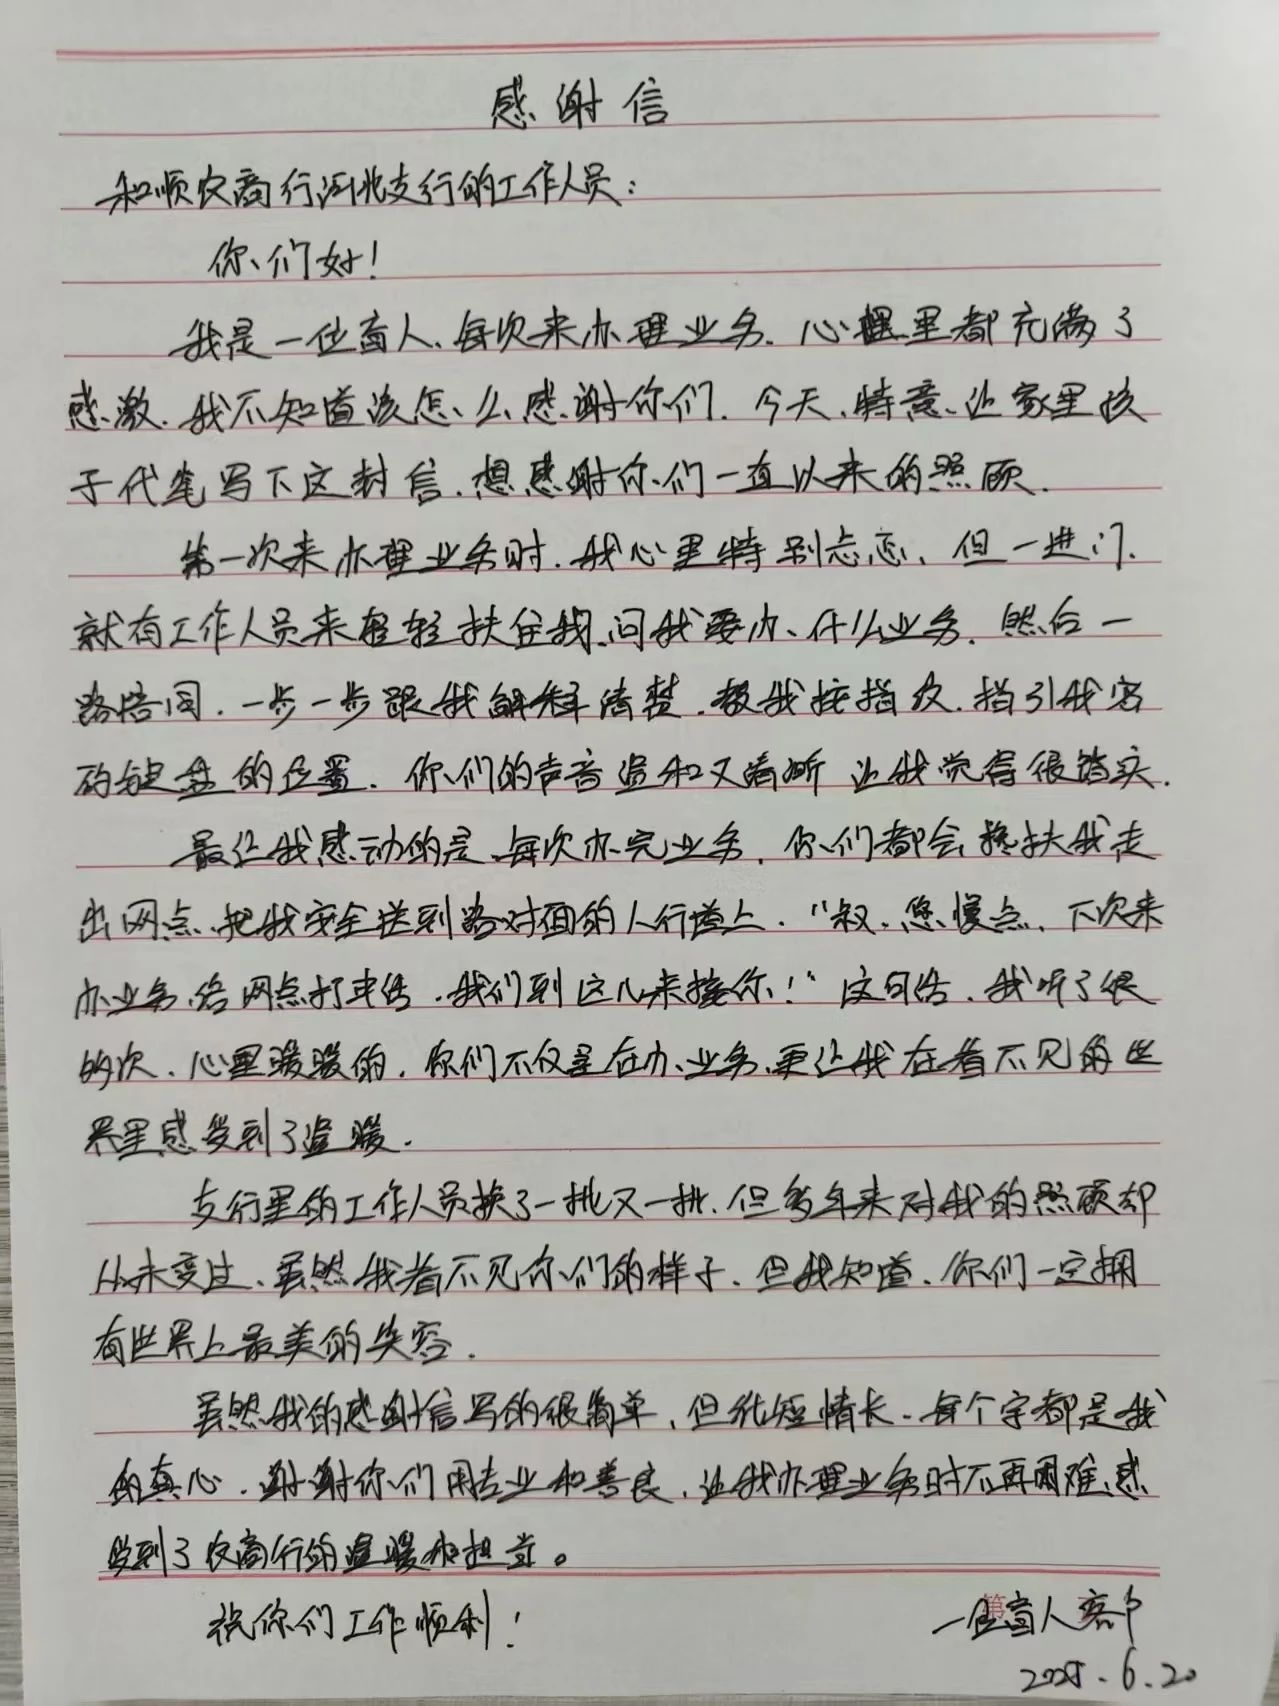 感谢信
和顺农商行河北支行的工作人员：
你们好！
我是一位盲人,每次来办理业务.心里都充满了
感激.我不知道该怎么感谢你们.今天,特意让家里孩
子代笔写下这封信.想感谢你们一直以来的照顾.
第一次来办理业务时.我心里特别忐忑,但一进门.
就有工作人员来轻轻扶住我.问我要办什么业务.然后一
路陪同.一步一步跟我解释清楚.教我按指纹.指引我密
码键盘的位置.你们的声音温和又清晰 让我觉得很踏实.
最让我感动的是,每次办完业务.你们都会搀扶我走
出网点.把我安全送到路对面的人行道上."叔,您慢点,下次来
办业务,给网点打电话.我们到这儿来接你！"这句话.我听了很
多次.心里暖暖的.你们不仅是在办业务,更让我在看不见的世
界里感受到了温暖.
支行里的工作人员换了一批又一批.但多年来对我的照顾却
从未变过.虽然我看不见你们的样子.但我知道.你们一定拥
有世界上最美的笑容.
虽然我的感谢信写的很简单,但纸短情长.每个字都是我
的真心.谢谢你们用专业和善良,让我办理业务时不再困难,感
受到了农商行的温暖和担当。
祝你们工作顺利！
一位盲人客户
2025.6.20